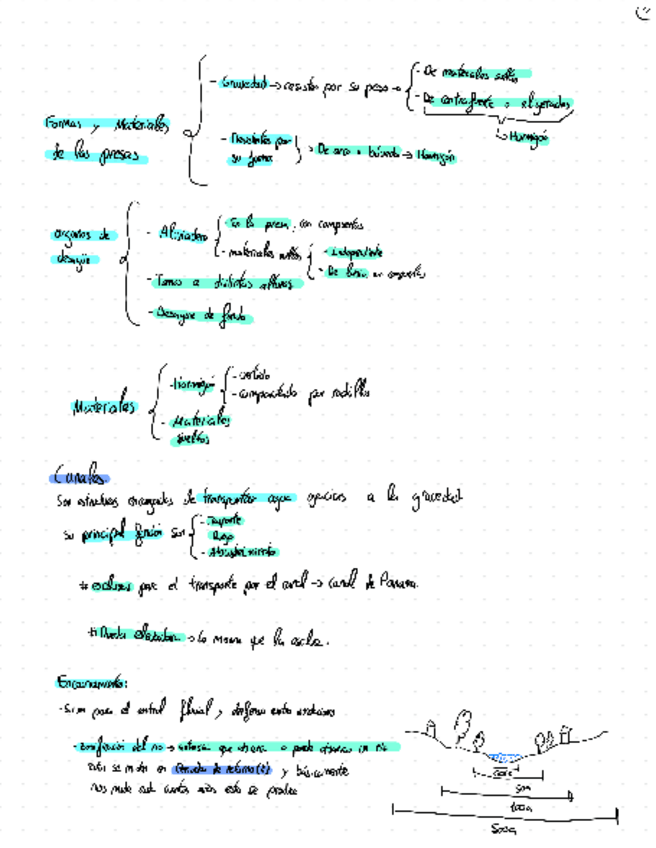 - Gravedad → resisten por su peso →
- De materiales sueltos
- De contrafuerte o aligeradas
↳ Hormigón
Formas y Materiales
de las presas
- Resistentes por
su forma
→ De arco o bóveda → Hormigón
organos de
desagüe
- Aliviadero
- En la presa, con compuertas
- materiales sueltos
- Independiente
- Tomas a distintas alturas
- Desagüe de fondo
Materiales
- Hormigón
- vertido
- compactado por rodillos
- Materiales
sueltos
Canales
Son estructuras encargadas de transportar agua gracias a la gravedad
su principal función son
- Transporte
Riego
- Abastecimiento
* esclusas para el transporte por el canal → canal de Panama.
* Rueda elevadora → Lo mismo que la esclusa.
Encauzamiento:
- Sirven para el control fluvial, defensa ante avenidas
- zonificación del río → extensión que abarca o puede abarcar un río
esto se mide en Periodos de retorno (t) y básicamente
nos mide cada cuantos años esto se produce
50a
100a
500a